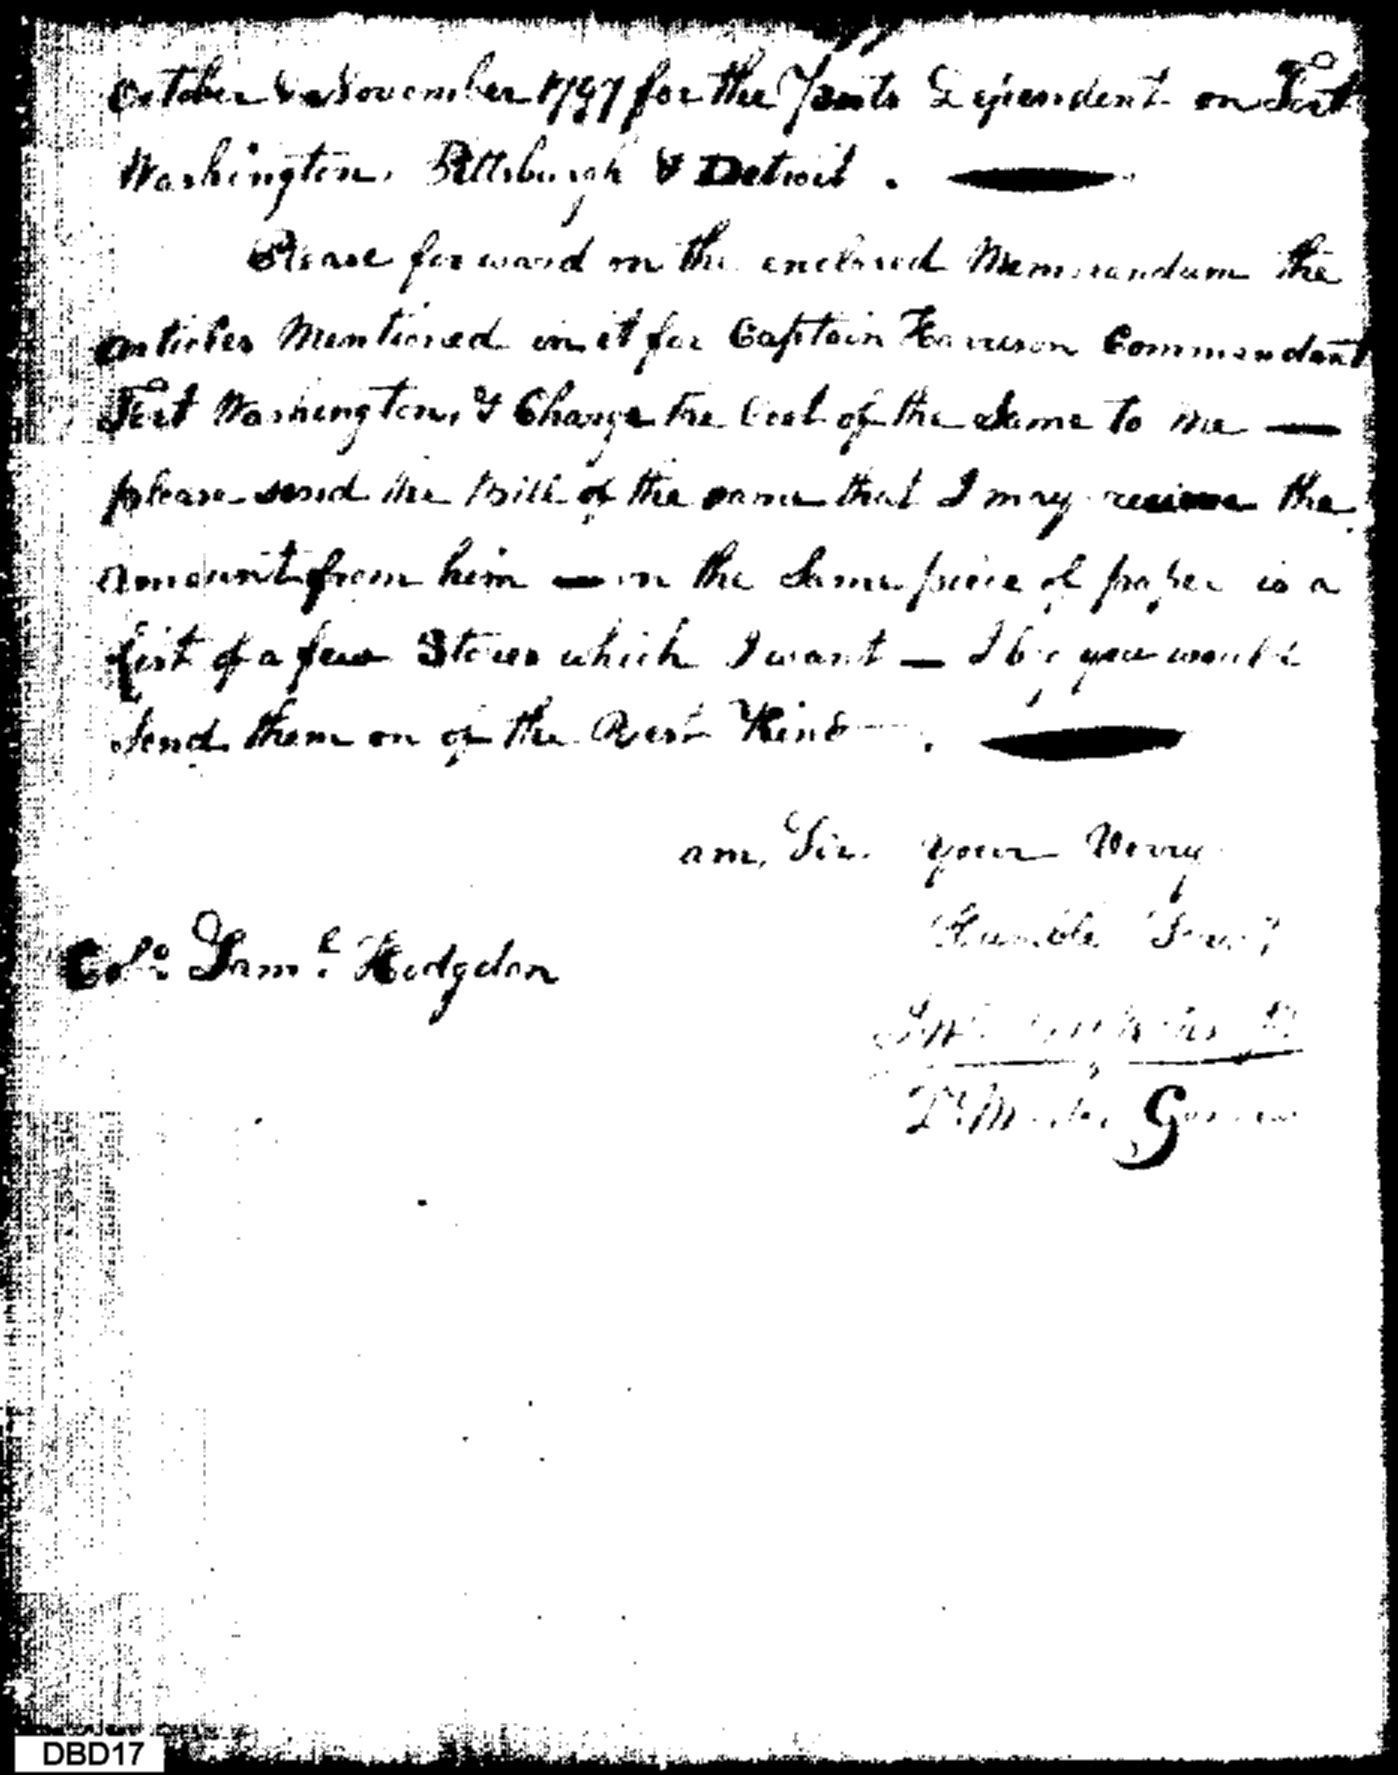 October & November 1797 for the Posts Dependent on Fort
Washington, Pittsburgh & Detroit.
Please forward on the enclosed Memorandum the
articles Mentioned in it for Captain Harrison Commandant
Fort Washington, & Charge the Cost of the Same to me —
please send me Bill of the same that I may receive the
amount from him — on the Same piece of paper is a
list of a few Stores which I want — I beg you would
Send them on of the Best Kind.
am, Sir your Verry
Humble Serv.t
Colo Sam.l Hodgdon
Jno
Qr Master General
DBD17